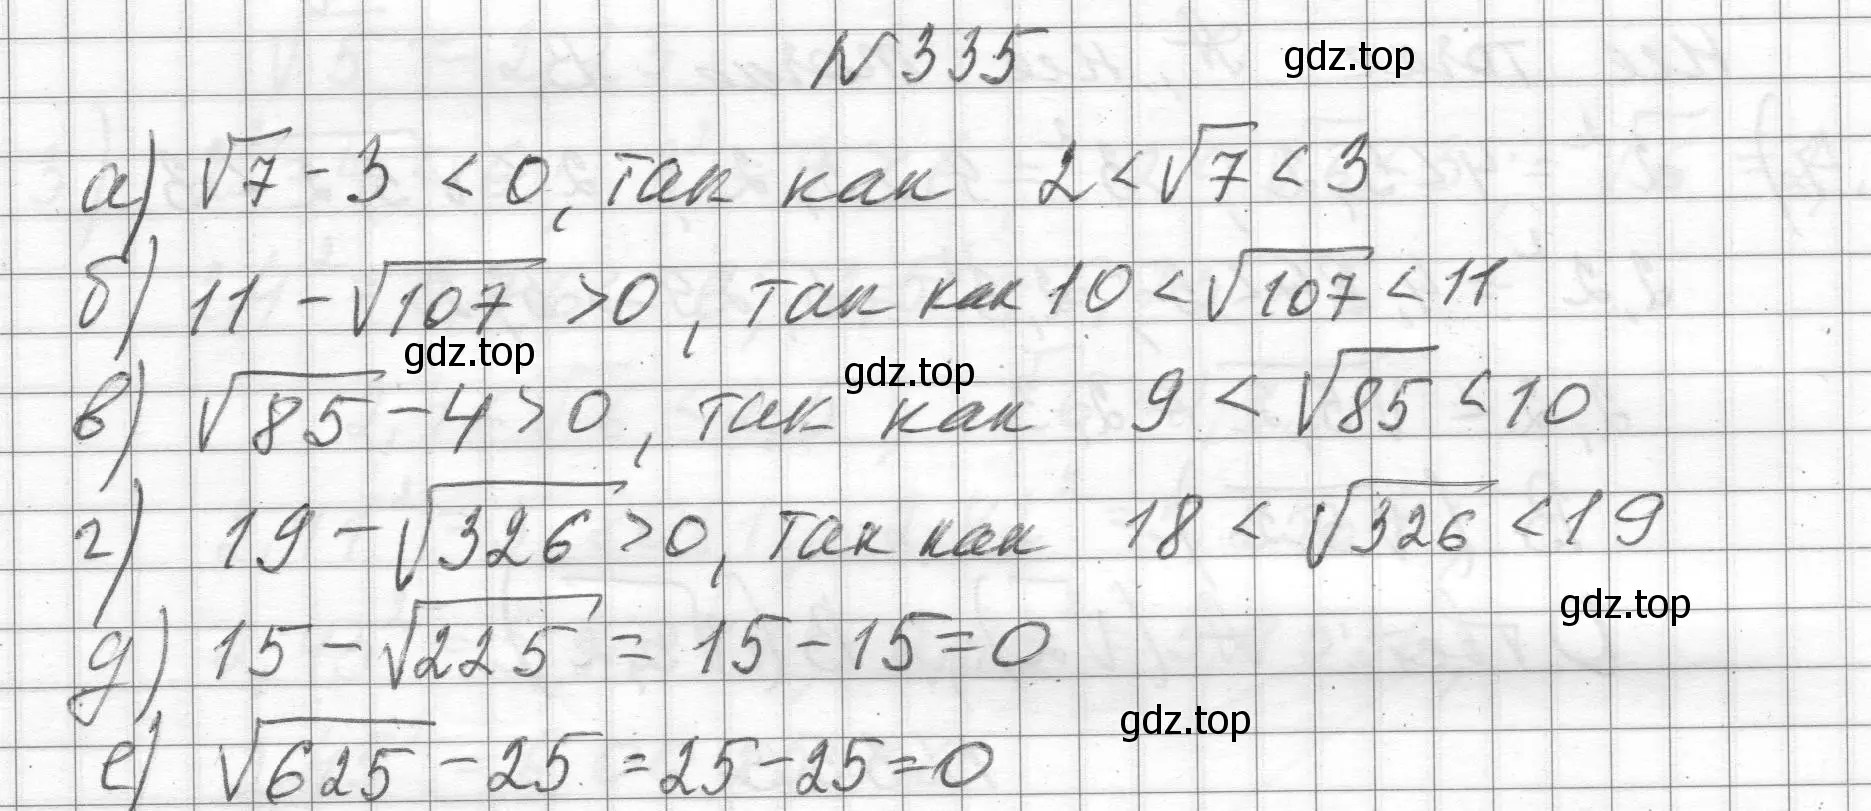 N 335
gdz.top
а) √7 - 3 < 0, так как 2 < √7 < 3
б) 11 - √107 > 0, так как 10 < √107 < 11
gdz.top
gdz.top
в) √85 - 4 > 0, так как 9 < √85 < 10
г) 19 - √326 > 0, так как 18 < √326 < 19
gdz.top
д) 15 - √225 = 15 - 15 = 0
gdz.top
е) √625 - 25 = 25 - 25 = 0